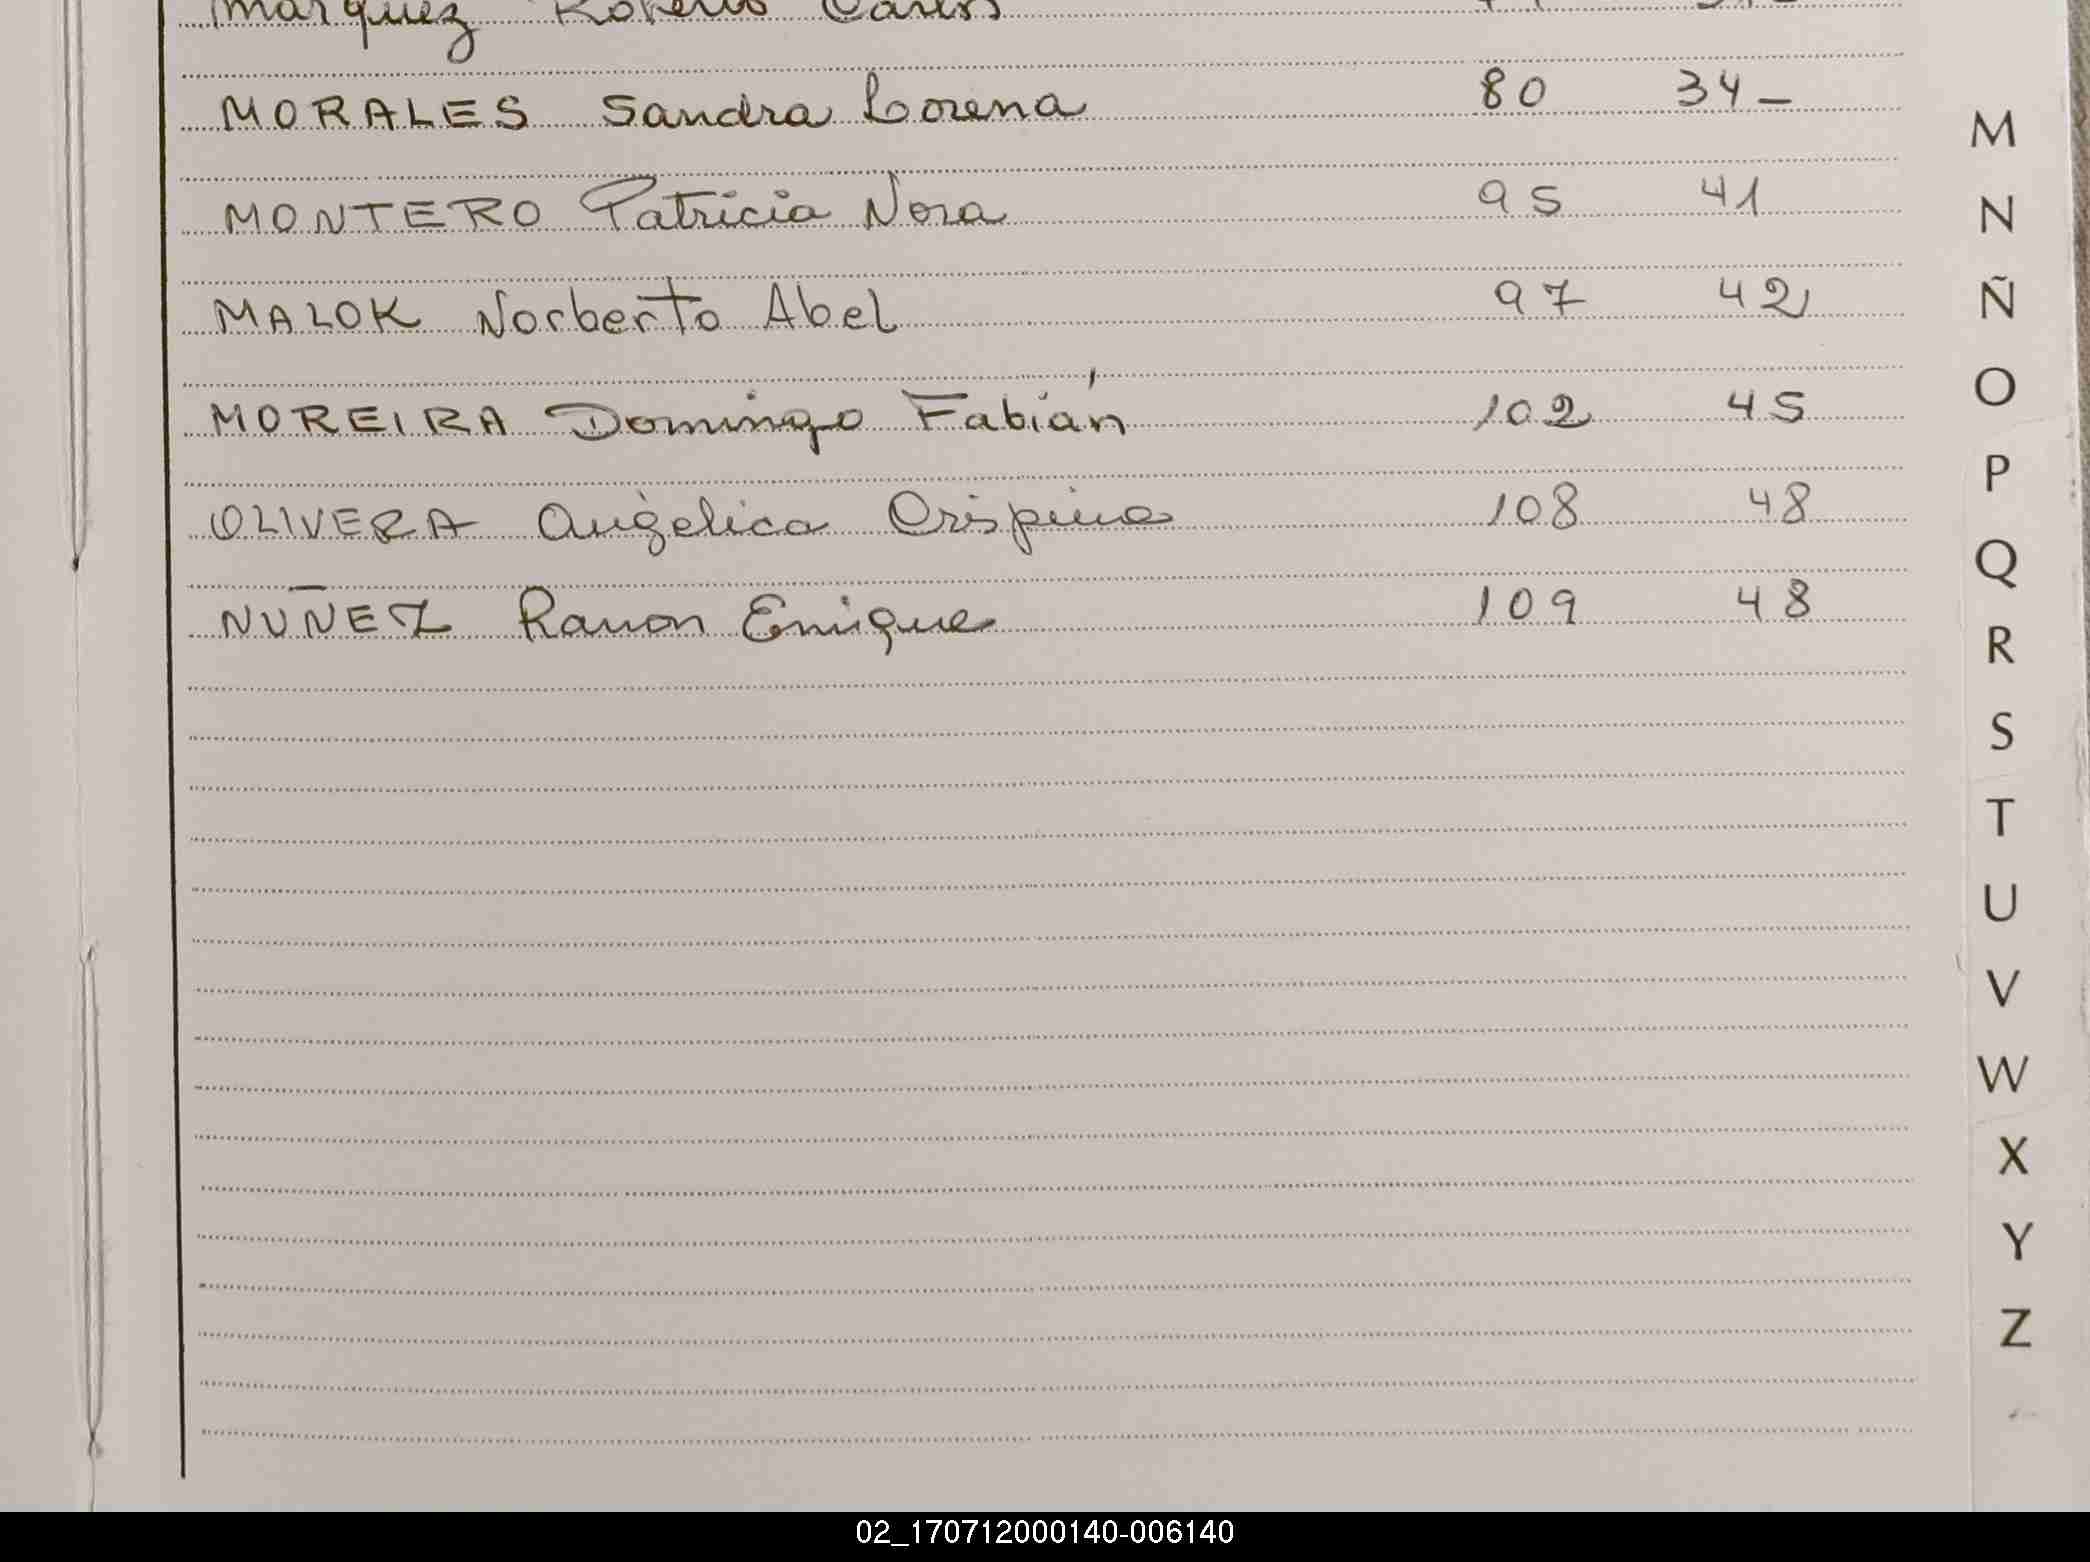 Marquez Roberto Carlos
MORALES Sandra Lorena 80 34 -
MONTERO Patricia Nora 95 41
MALOK Norberto Abel 97 42
MOREIRA Domingo Fabián 102 45
OLIVERA Angélica Crispina 108 48
NUÑEZ Ramon Enrique 109 48
M
N
Ñ
O
P
Q
R
S
T
U
V
W
X
Y
Z
02_170712000140-006140